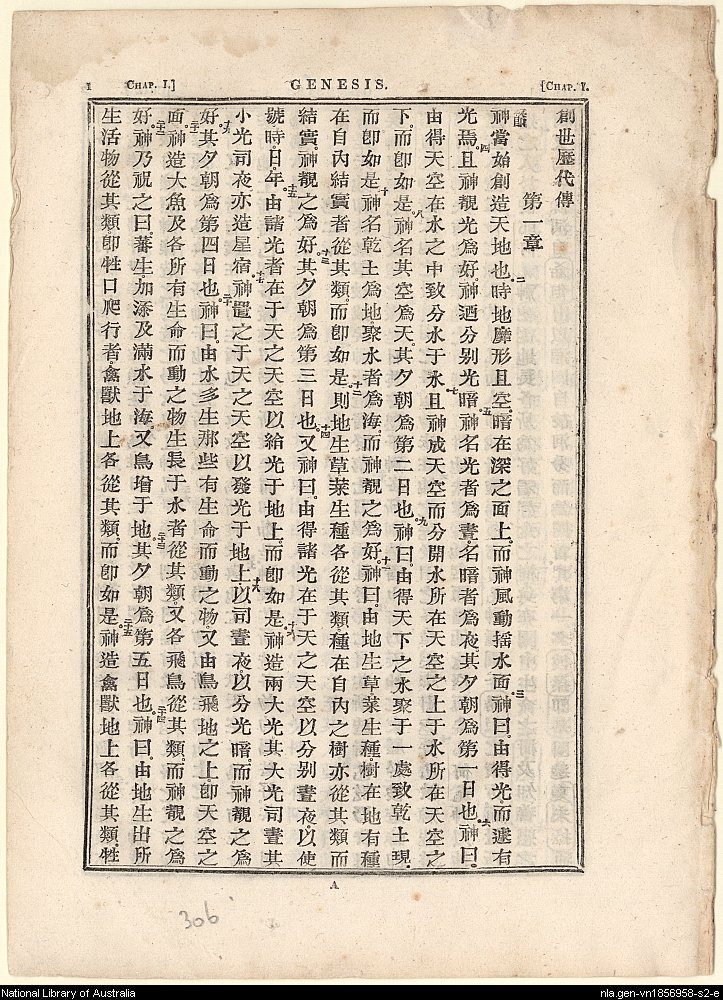 1 CHAP. I.] GENESIS. [CHAP. I.
創世歷代傳
第一章
神當始創造天地也。二時地無形且空。暗在深之面上。而神風動搖水面。三神曰。由得光。而遂有
光焉。四且神覩光為好。神廼分別光暗。五神名光者為晝。名暗者為夜。其夕朝為第一日也。六神曰。
由得天空在水之中致分水于水。七且神成天空而分開水所在天空之上于水所在天空之
下。而即如是。八神名其空為天。其夕朝為第二日也。九神曰。由得天下之水聚于一處致乾土現。
而即如是。十神名乾土為地。聚水者為海。而神覩之為好。十一神曰。由地生草菜生種。樹在地有種
在自內結實者從其類。而即如是。十二則地生草菜生種各從其類。種在自內之樹亦從其類。而
結實。神覩之為好。十三其夕朝為第三日也。十四又神曰。由得諸光在于天之天空以分別晝夜。以使
號時。日。年。十五由諸光者在于天之天空以給光于地上。而即如是。十六神造兩大光。其大光司晝。其
小光司夜。亦造星宿。十七神置之于天之天空以發光于地上。十八以司晝夜以分光暗。而神覩之為
好。十九其夕朝為第四日也。二十神曰。由水多生那些有生命而動之物。又由鳥飛地之上。即天空之
面。二十一神造大魚及各所有生命而動之物。生長于水者從其類。又各飛鳥從其類。而神覩之為
好。二十二神乃祝之曰。蕃生。加添及滿水于海。又鳥增于地。二十三其夕朝為第五日也。二十四神曰。由地生出所
生活物從其類。即牲口爬行者。禽獸地上各從其類。而即如是。二十五神造禽獸地上各從其類。牲
A
306
National Library of Australia
nla.gen-vn1856958-s2-e